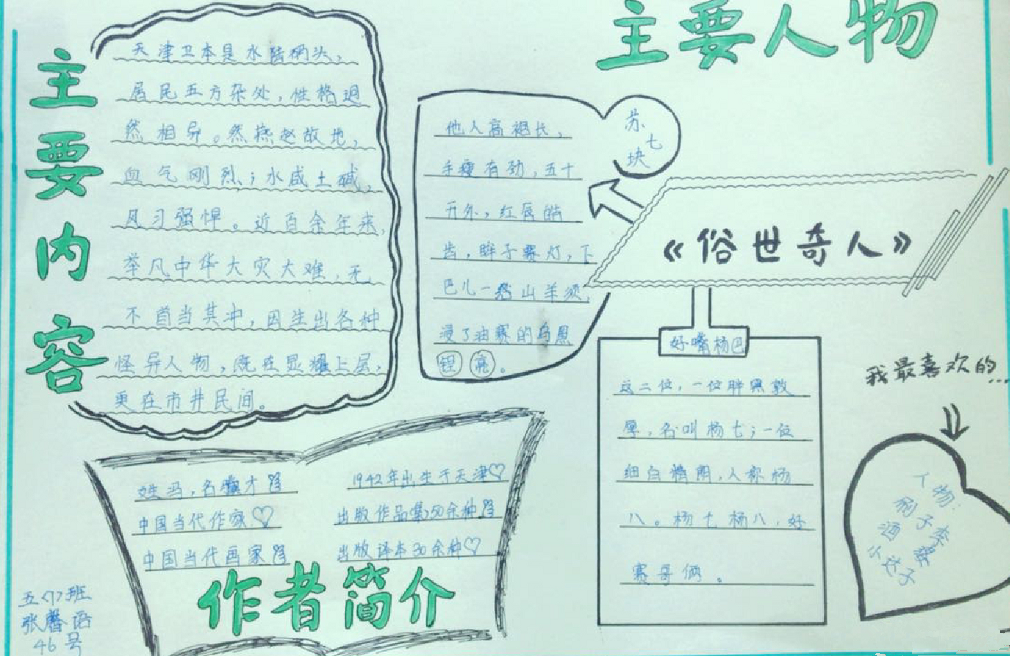 主要内容
天津卫本是水陆码头,
居民五方杂处,性格迥
然相异。然燕赵故地,
血气刚烈;水咸土碱,
风习强悍。近百余年来,
举凡中华大灾大难,无
不首当其冲,因生出各种
怪异人物,既在显耀上层,
更在市井民间。
主要人物
苏七块
他人高袍长,
手瘦有劲,五十
开外,红唇皓
齿,眸子赛灯,下
巴儿一绺山羊须,
浸了油赛的乌黑
锃亮。
《俗世奇人》
好嘴杨巴
这二位,一位胖黑敦
厚,名叫杨七;一位
细白精朗,人称杨
八。杨七杨八,好
赛哥俩。
我最喜欢的...
人物:
刷子李
酒婆
小达子
姓冯,名骥才
中国当代作家♡
中国当代画家
1942年出生于天津♡
出版作品集50余种
出版译本30余种♡
作者简介
五<7>班
张馨函
46号